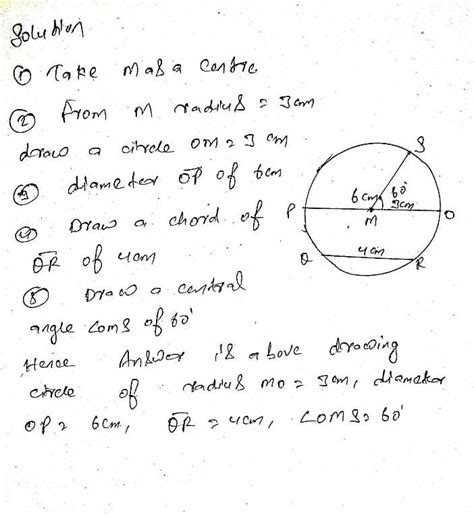 Solution
① Take M as a centre
② From M radius = 3cm
draw a circle OM = 3 cm
③ diameter OP of 6cm
④ Draw a chord of
QR of 4cm
⑤ Draw a central
angle ∠OMS of 60°
Hence Answer is above drawing
circle of radius MO = 3cm, diameter
OP = 6cm, QR = 4cm, ∠OMS = 60°
S
6cm 60°
3cm
P M O
4cm
Q R